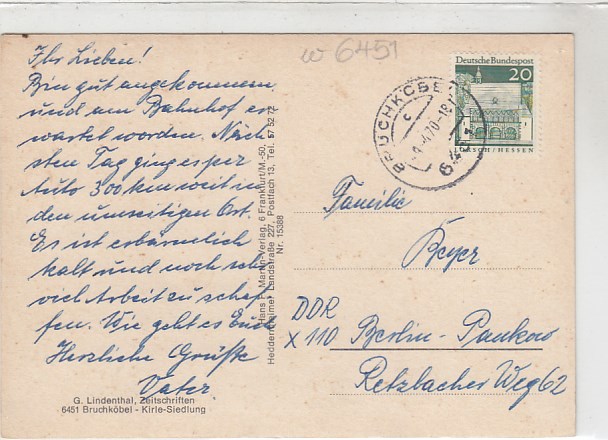 w 6451
Ihr Lieben!
Bin gut angekommen
und am Bahnhof er
wartet worden. Näch
sten Tag ging es per
Auto 300 km weit in
den umseitigen Ort.
Es ist erbärmlich
kalt und noch sehr
viel Arbeit zu schaf
fen. Wie geht es Euch
Herzliche Grüße
Vater
G. Lindenthal, Zeitschriften
6451 Bruchköbel - Kirle-Siedlung
Hans P. Martin-Verlag, 6 Frankfurt/M.-50,
Heddernheimer Landstraße 227, Postfach 13, Tel. 57 52 72
Nr. 15388
Deutsche Bundespost
20
LORSCH/HESSEN
BRUCHKÖBEL
c
70-18
Familie
Beyer
DDR
X 110 Berlin-Pankow
Retzbacher Weg 62